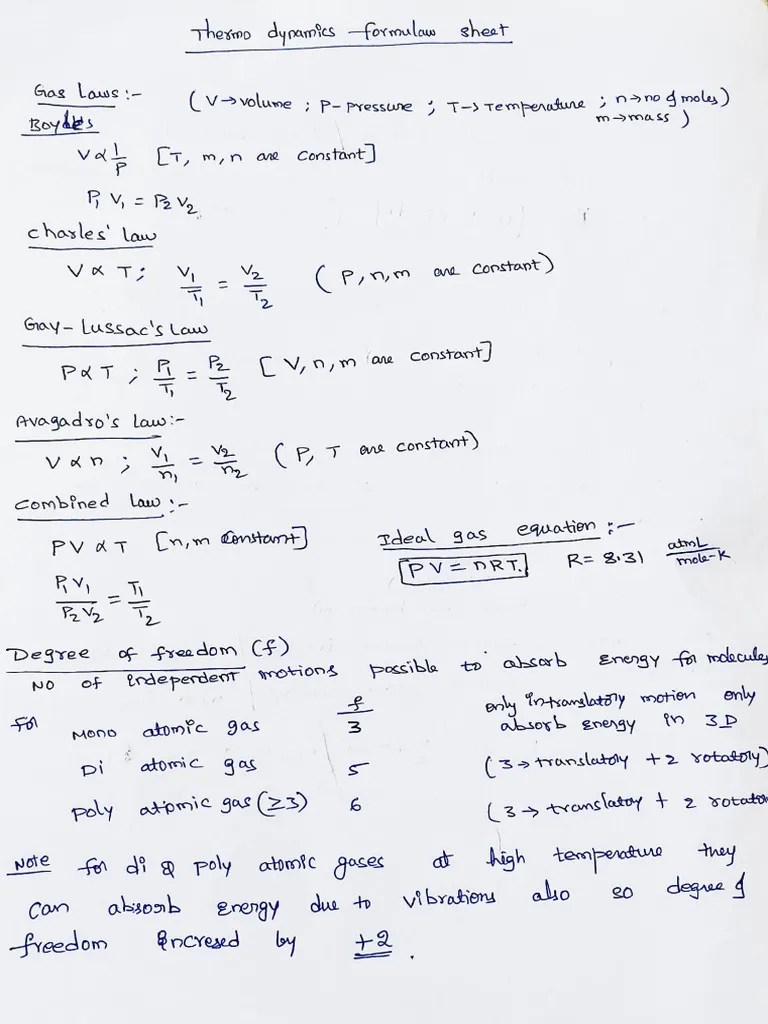 Thermo dynamics - formulaw sheet
Gas Laws :- (V→volume ; P- pressure ; T→ Temperature ; n→no of moles)
m→mass )
Boyles
V ∝ 1/P [T, m, n are constant]
P₁ V₁ = P₂ V₂
Charles' law
V ∝ T ; V₁/T₁ = V₂/T₂ ( P, n, m are constant)
Gay-Lussac's Law
P ∝ T ; P₁/T₁ = P₂/T₂ [ V, n, m are constant]
Avagadro's Law :-
V ∝ n ; V₁/n₁ = V₂/n₂ ( P, T are constant)
Combined Law :-
PV ∝ T [n, m constant]
P₁V₁/P₂V₂ = T₁/T₂
Ideal gas equation :-
PV = nRT. R = 8.31 atmL/mole-K
Degree of freedom (f)
No of independent motions possible to absorb energy for molecules
f
for Mono atomic gas 3 only in translatory motion only
absorb energy in 3D
Di atomic gas 5 (3→translatory + 2 rotatory)
Poly atomic gas (≥3) 6 (3→ translatoy + 2 rotator
Note for di & poly atomic gases at high temperature they
can abisorb energy due to vibrations also so degree of
freedom incresed by +2 .